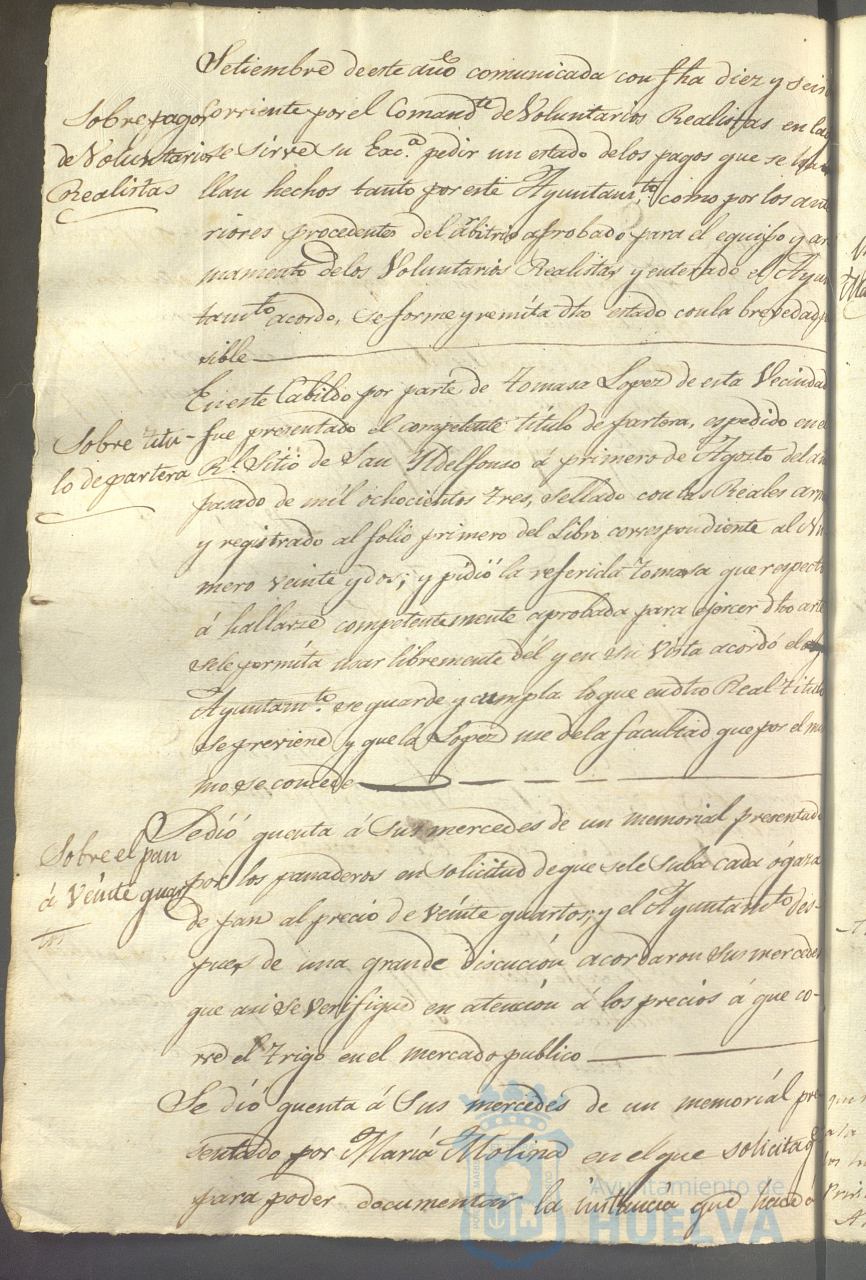 Setiembre de este año comunicada con fha diez y seis
Sobre pagos
de Voluntarios
Realistas
corriente por el Comandte de Voluntarios Realistas en la q
se sirve su Exca pedir un estado de los pagos que se ha
llan hechos tanto por este Ayuntamto como por los ante
riores procedentes del arbitrio aprobado para el equipo y ar
mamento de los Voluntarios Realistas y enterado el Ayun
tamto acordo, se forme y remita dho estado con la brevedad po
sible
Sobre titu-
lo de partera
En este Cabildo por parte de Tomasa Lopez de esta Vecindad
fue presentado el competente título de partera, espedido en el
Rl Sitio de San Yldelfonso á primero de Agosto del añ
pasado de mil ochocientos tres, sellado con las Reales arm
y registrado al folio primero del Libro correspondiente al Nu
mero veinte y dos; y pidió la referida Tomasa que respecto
á hallarze competentemente aprobada para ejercer dho arte
se le permita usar libremente dél y en su vista acordó el
Ayuntamto se guarde y cumpla lo que en dho Real titulo
se previene y que la Lopez use de la facultad que por el mis
mo se concede
Sobre el pan
á Veinte quar
tos
Se dió quenta á Sus mercedes de un memorial presentado
por los panaderos en solicitud de que se le suba cada ógaza
de pan al precio de veinte quartos, y el Ayuntamto des-
pues de una grande discucion acordaron sus mercedes
que asi se verifique en atencion á los precios á que co-
rre el trigo en el mercado publico
Se dio quenta á Sus mercedes de un memorial pre
sentado por María Molina en el que solicita q
para poder documentar la instancia que hace á
Ayuntamiento de
HUELVA